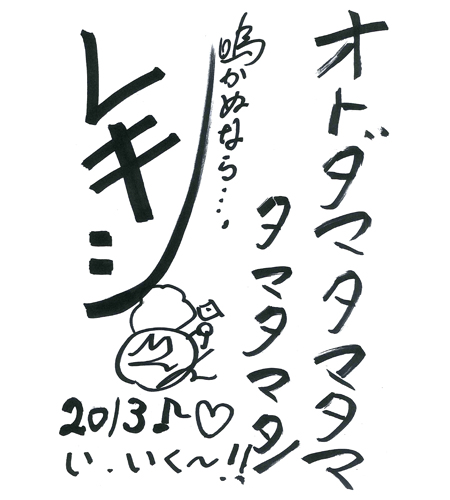 オドダマタマタマ
タマタマタ
鳴かぬなら….
レキシ
2013♪♡
い、いく〜!!